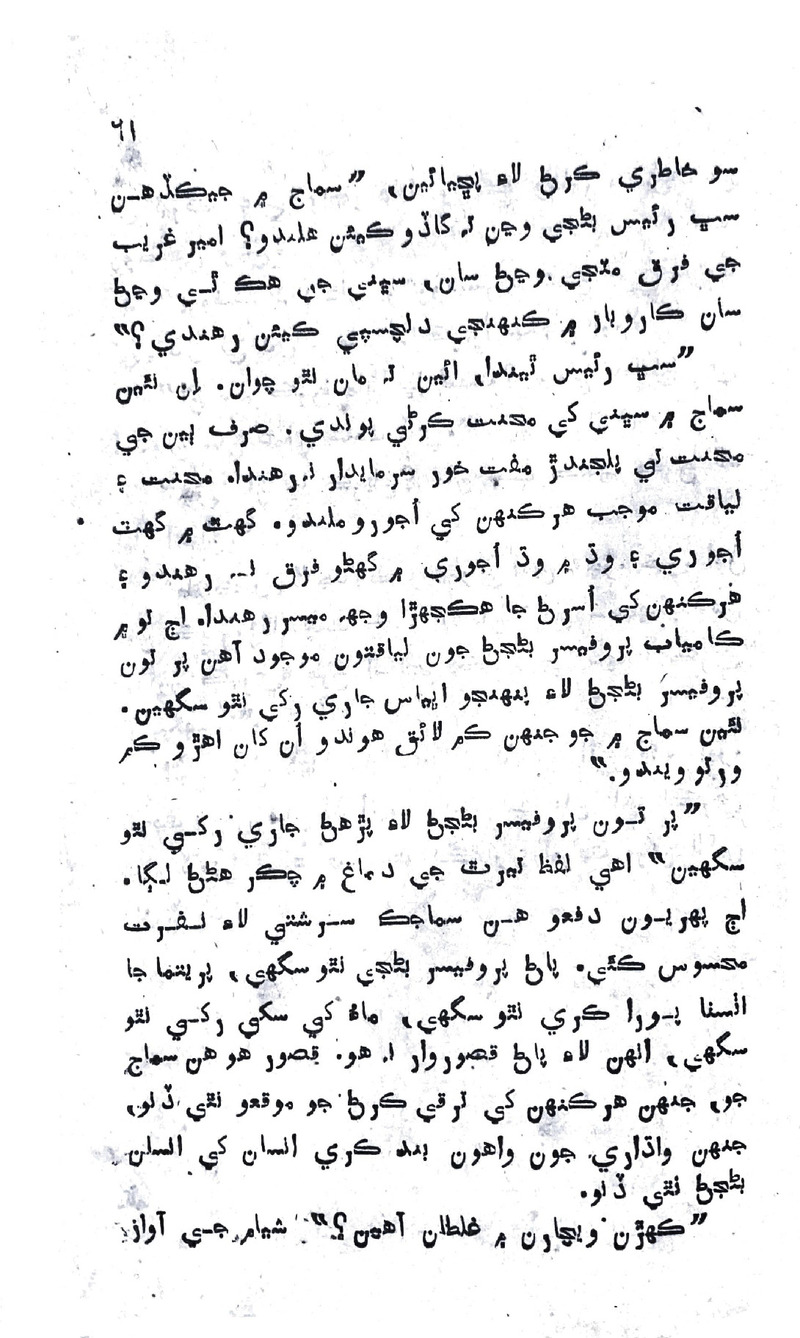 ٦١
سو خاطري ڪرڻ لاءِ پڇيائين، ”سماج ۾ جيڪڏهـن
سڀ رئيس بڻجي وڃن تہ گاڏو ڪيئن هلندو؟ امير غريب
جي فرق مٽجي وڃڻ سان، سڀني جي هڪ ٿـي وڃڻ
سان ڪاروبار ۾ ڪنهنجي دلچسپي ڪيئن رهندي؟“
”سڀ رئيس ٿيندا، ائين تہ مان نٿو چوان. اِن نئين
سماج ۾ سڀني کي محنت ڪرڻي پوندي. صرف ٻين جي
محنت تي پلجندڙ مفت خور سرمايدار نہ رهندا. محنت ۽
لياقت موجب هرڪنهن کي اُجورو ملندو. گهٽ ۾ گهٽ
اُجوري ۽ وڌ ۾ وڌ اُجوري ۾ گهڻو فرق نـہ رهندو ۽
هرڪنهن کي اُسرڻ جا هڪجهڙا وجهہ ميسر رهندا. اڄ تو ۾
ڪامياب پروفيسر بڻجڻ جون لياقتون موجود آهن پر تون
پروفيسر بڻجڻ لاءِ پنهنجو اڀياس جاري رکي نٿو سگهين.
نئين سماج ۾ جو جنهن ڪم لائق هوندو اُن کان اهڙو ڪم
ورتو ويندو.“
”پر تـون پروفيسر بڻجڻ لاءِ پڙهڻ جاري رکـي نٿو
سگهين“ اهي لفظ تيرٿ جي دماغ ۾ چڪر هڻڻ لـڳا.
اڄ پهريـون دفعو هـن سماجڪ سـرشتي لاءِ نـفـرت
محسوس ڪئي. پاڻ پروفيسر بڻجي نٿو سگهي، پريتما جا
اڻسفا پـورا ڪري نٿو سگهي، ماءُ کي سکي رکـي نٿو
سگهي، انهن لاءِ پاڻ قصوروار نہ هو. قصور هو هن سماج
جو، جنهن هرڪنهن کي ترقي ڪرڻ جو موقعو نٿي ڏنو،
جنهن واڌاري جون واهون بند ڪري انسان کي انسان
بڻجڻ نٿي ڏنو.
”ڪهڙن ويچارن ۾ غلطان آهين؟“ شيام جـي آواز